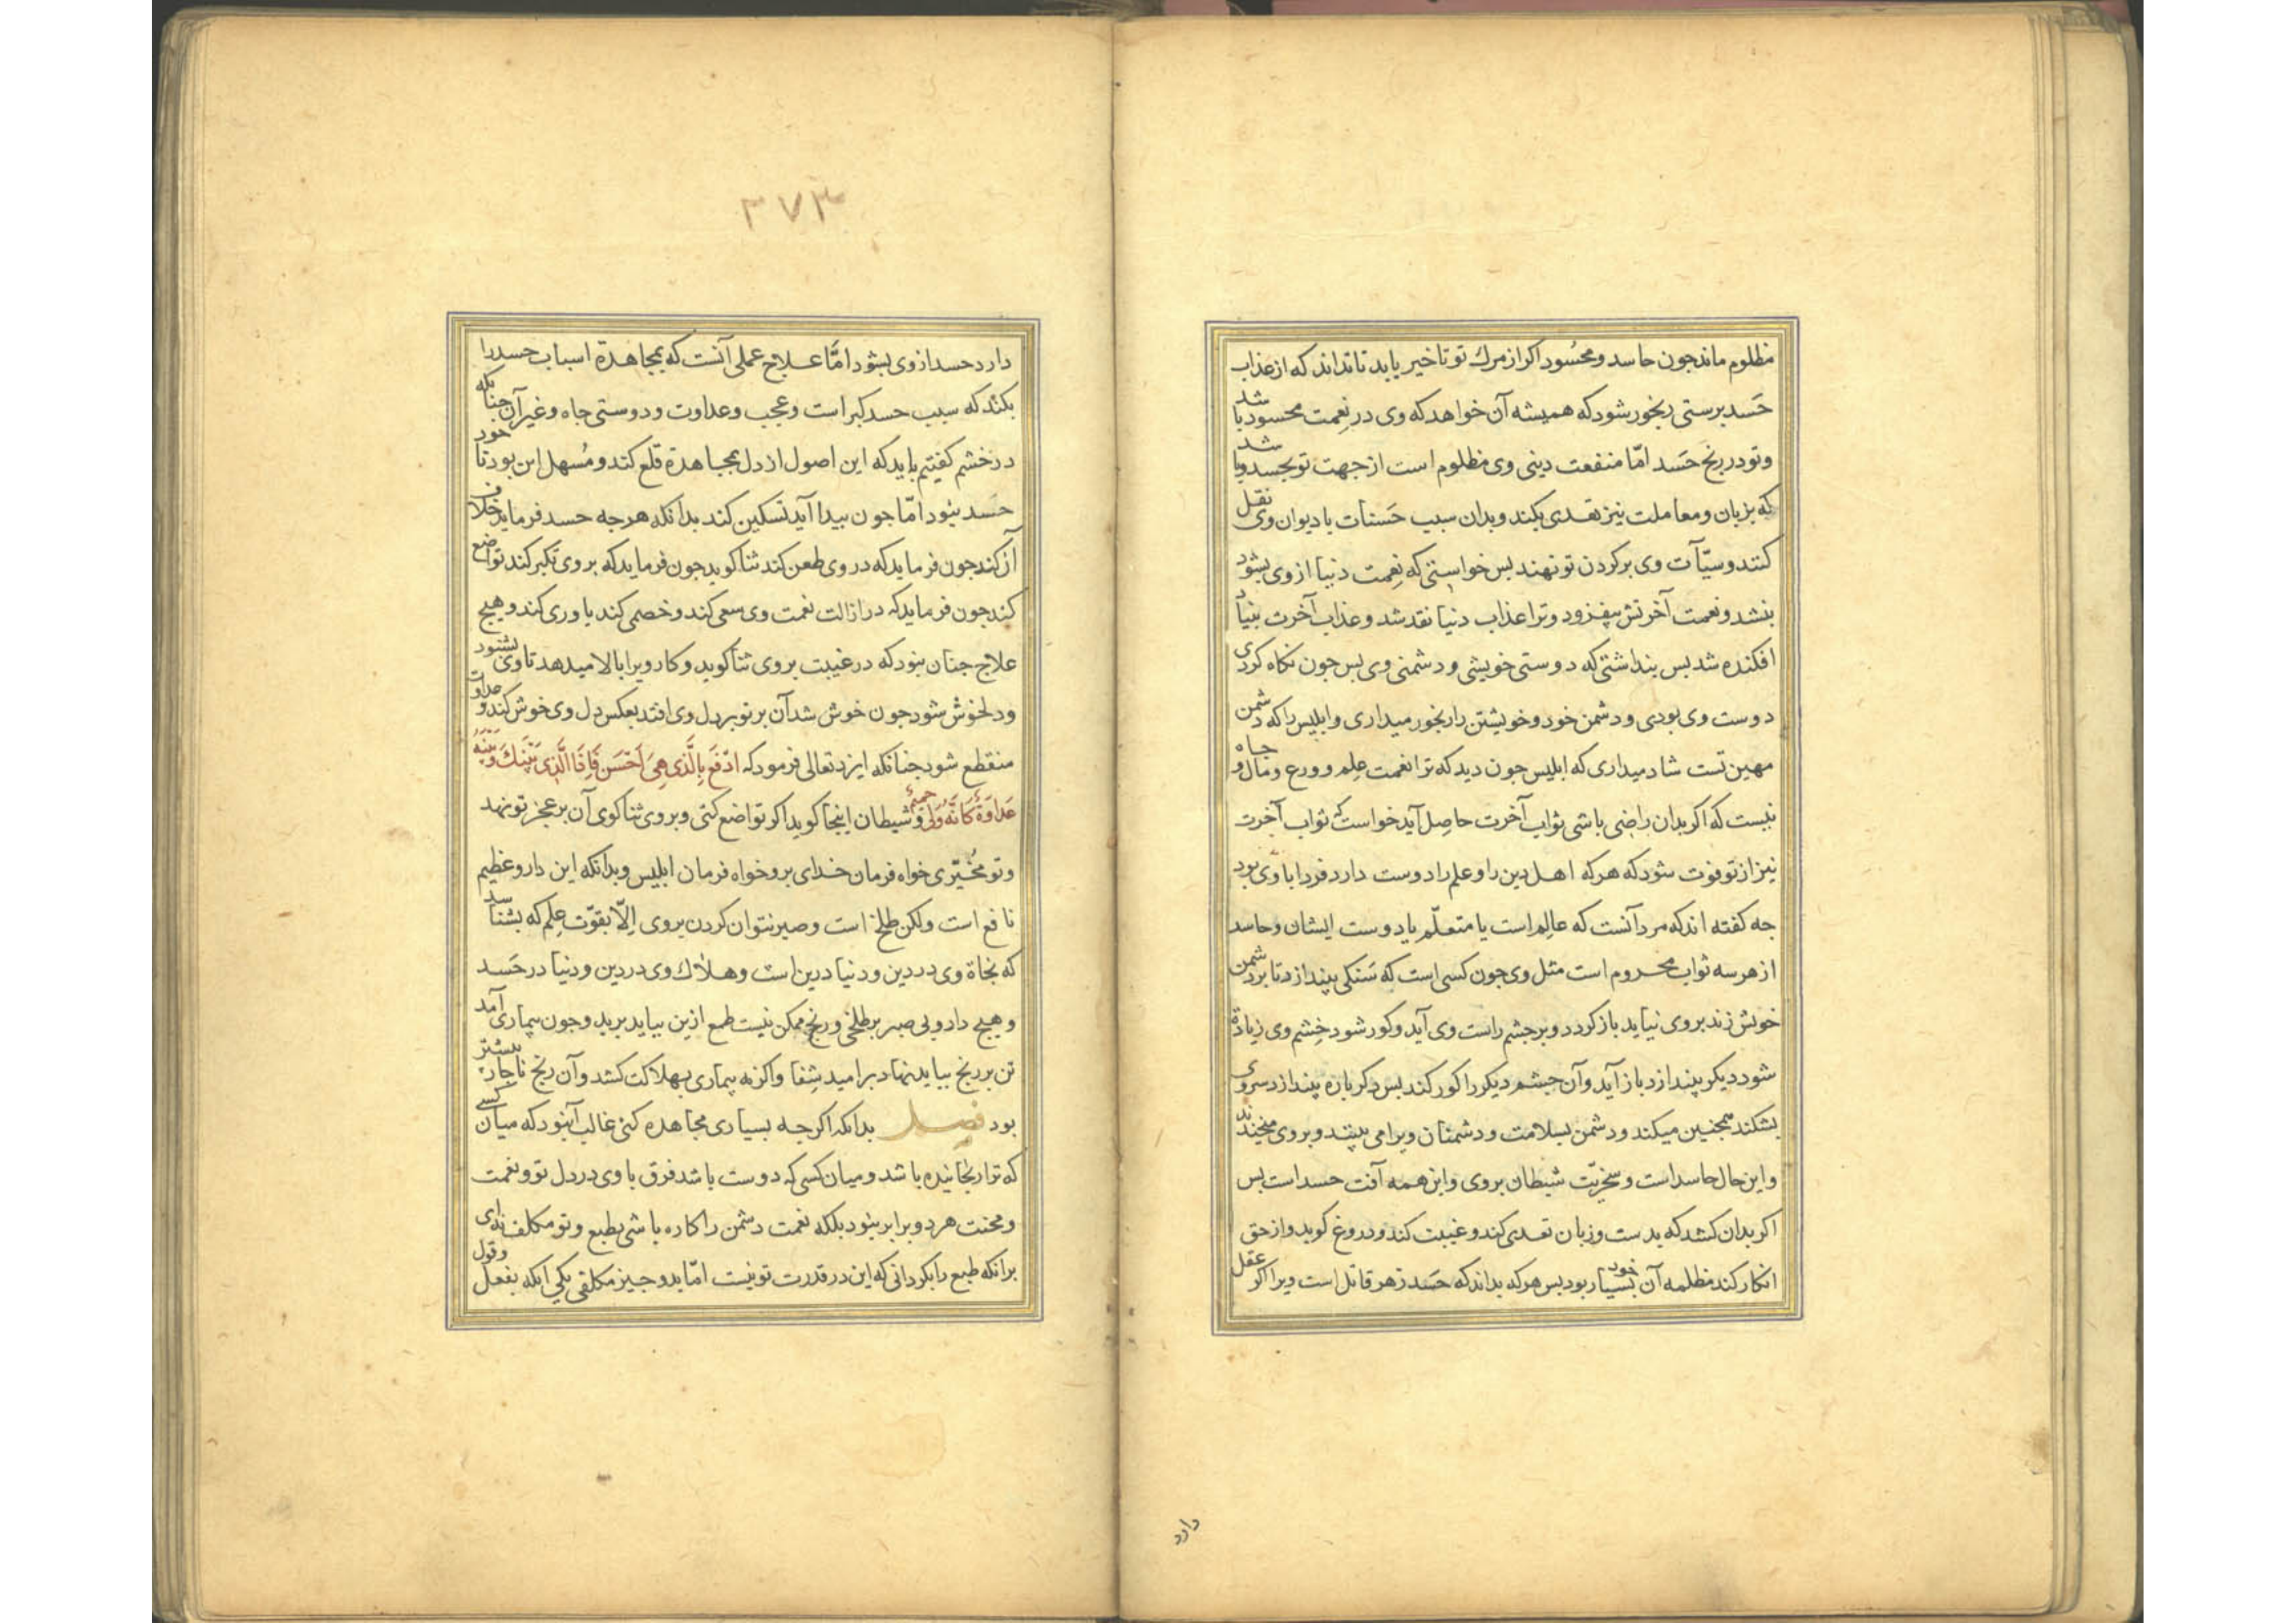 مظلوم ماند جون حاسد و محسُود اكر از مرك تو تاخير يابد تا نداند كه از عذاب
حَسد برستى رنجور شود كه هميشه آن خواهد كه وى در نِعمت محسود باشد
و تو در رنج حَسد امّا منفعت دينى وى مظلوم است از جهت تو بحسد و باشد
كه بزبان و معاملت نيز تعدى بكند و بدان سبب حَسنات با ديوان وى نقل
كنند و سيّآت وى بر كردن تو نهند بس خواستى كه نِعمت دنيا از وى بشود
بنشد و نعمت آخرتش بيفزود و ترا عذاب دنيا نقد شد و عذاب آخرت بنياد
افكنده شد بس بنداشتى كه دوستى خويشى و دشمنى وى بس جون نكاه كردى
دوست وى بودى و دشمن خود و خويشتن را رنجور ميدارى و ابليس را كه دشمن
مهين تست شاد ميدارى كه ابليس جون ديد كه ترا نعمت عِلم و ورع و مال و جاه
نيست كه اكر بدان راضى باشى ثواب آخرت حاصِل آيد خواست كه ثواب آخرت
نيز از تو فوت شود كه هر كه اهل دين را و علم را دوست دارد فردا با وى بود
جه كفته اند كه مرد آنست كه عالم است يا متعلّم يا دوست ايشان و حاسد
از هر سه ثواب محروم است مثل وى جون كسى است كه سَنكى بيندازد تا بر دشمن
خويش زند بر وى نيايد باز كردد و بر جشم راست وى آيد و كور شود خِشم وى زيادة
شود ديكر بيندازد باز آيد و آن جشم ديكر را كور كند بس دكر باره بيندازد سر وى
بشكند همجنين ميكند و دشمن بسلامت و دشمنان ويرا مى بينند و بر وى ميخندند
و اين حال حاسد است و سخريّت شيطان بر وى و اين همه آفت حسد است بس
اكر بدان كشد كه بدست و زبان تعدى كند و غيبت كند و دروغ كويد و از حق
انكار كند مظلمه آن خود بسيار بود بس هر كه بداند كه حَسد زهر قاتل است ويرا اكر عقل
دارد
٣٧٣
دارد حسد از وى بشود امّا عـلاج عملى آنست كه بمجاهدة اسباب حسد را
بكند كه سبب حسد كبر است و عجب و عداوت و دوستى جاه و غير آن جنانكه
در خشم كفتيم بايد كه اين اصول از دل بمجاهدة قلع كند و مُسهل اين بود تا خود
حَسد نبود امّا جون بيدا آيد تسكين كند بدانكه هر جه حسد فرمايد خلاف
آن كند جون فرمايد كه در وى طعن كند ثنا كويد جون فرمايد كه بر وى تكبر كند تواضع
كند جون فرمايد كه در ازالت نعمت وى سعى كند و خصمى كند ياورى كند و هيج
علاج جنان نبود كه در غيبت بر وى ثنا كويد و كار ويرا بالا ميدهد تا وى بشنود
و دلخوش شود جون خوش شد آن برتو بر دل وى افتد بعكس دل وى خوش كند و عداوت
منقطع شود جنانكه ايزد تعالى فرمود كه ادْفَع بِالَّذى هِىَ اَحْسَن فَاِذَا الَّذِى بَيْنَكَ وَبَيْنَهُ
عَدَاوَةٌ كَاَنَّهُ وَلِىٌّ حَمِيمٌ و شيطان اينجا كويد اكر تواضع كنى و بر وى ثنا كوى آن بر عجز تو نهد
و تو مُخيّرى خواه فرمان خداى بر و خواه فرمان ابليس و بدانكه اين دارو عظيم
نافع است و لكن طلخ است و صبر نتوان كردن بر وى اِلّا بقوّت عِلم كه بشناسد
كه نجاة وى در دين و دنيا درين است و هـلاك وى در دين و دنيا در حَسد
و هيج دارو بى صبر بر طلخى و رنج ممكن نيست طمع ازين ببايد بريد و جون بيمارى آمد
تن بر رنج ببايد نهاد بر اميد شِفا و اكر نه بيمارى بهلاكت كشد و آن رنج ناجار بيشتر
بود فصـل بدانكه اكر جه بسيارى مجاهده كنى غالب آنبود كه ميان كسى
كه ترا رنجانيده باشد و ميان كسى كه دوست باشد فرق يا وى در دل تو و نعمت
و محنت هر دو برابر نبود بلكه نعمت دشمن را كاره باشى بطبع و تو مكلف نه اى
بر انكه طبع را بكردانى كه اين در قدرت تو نيست امّا بدو جيز مكلفى يكى انكه بفعل و قول